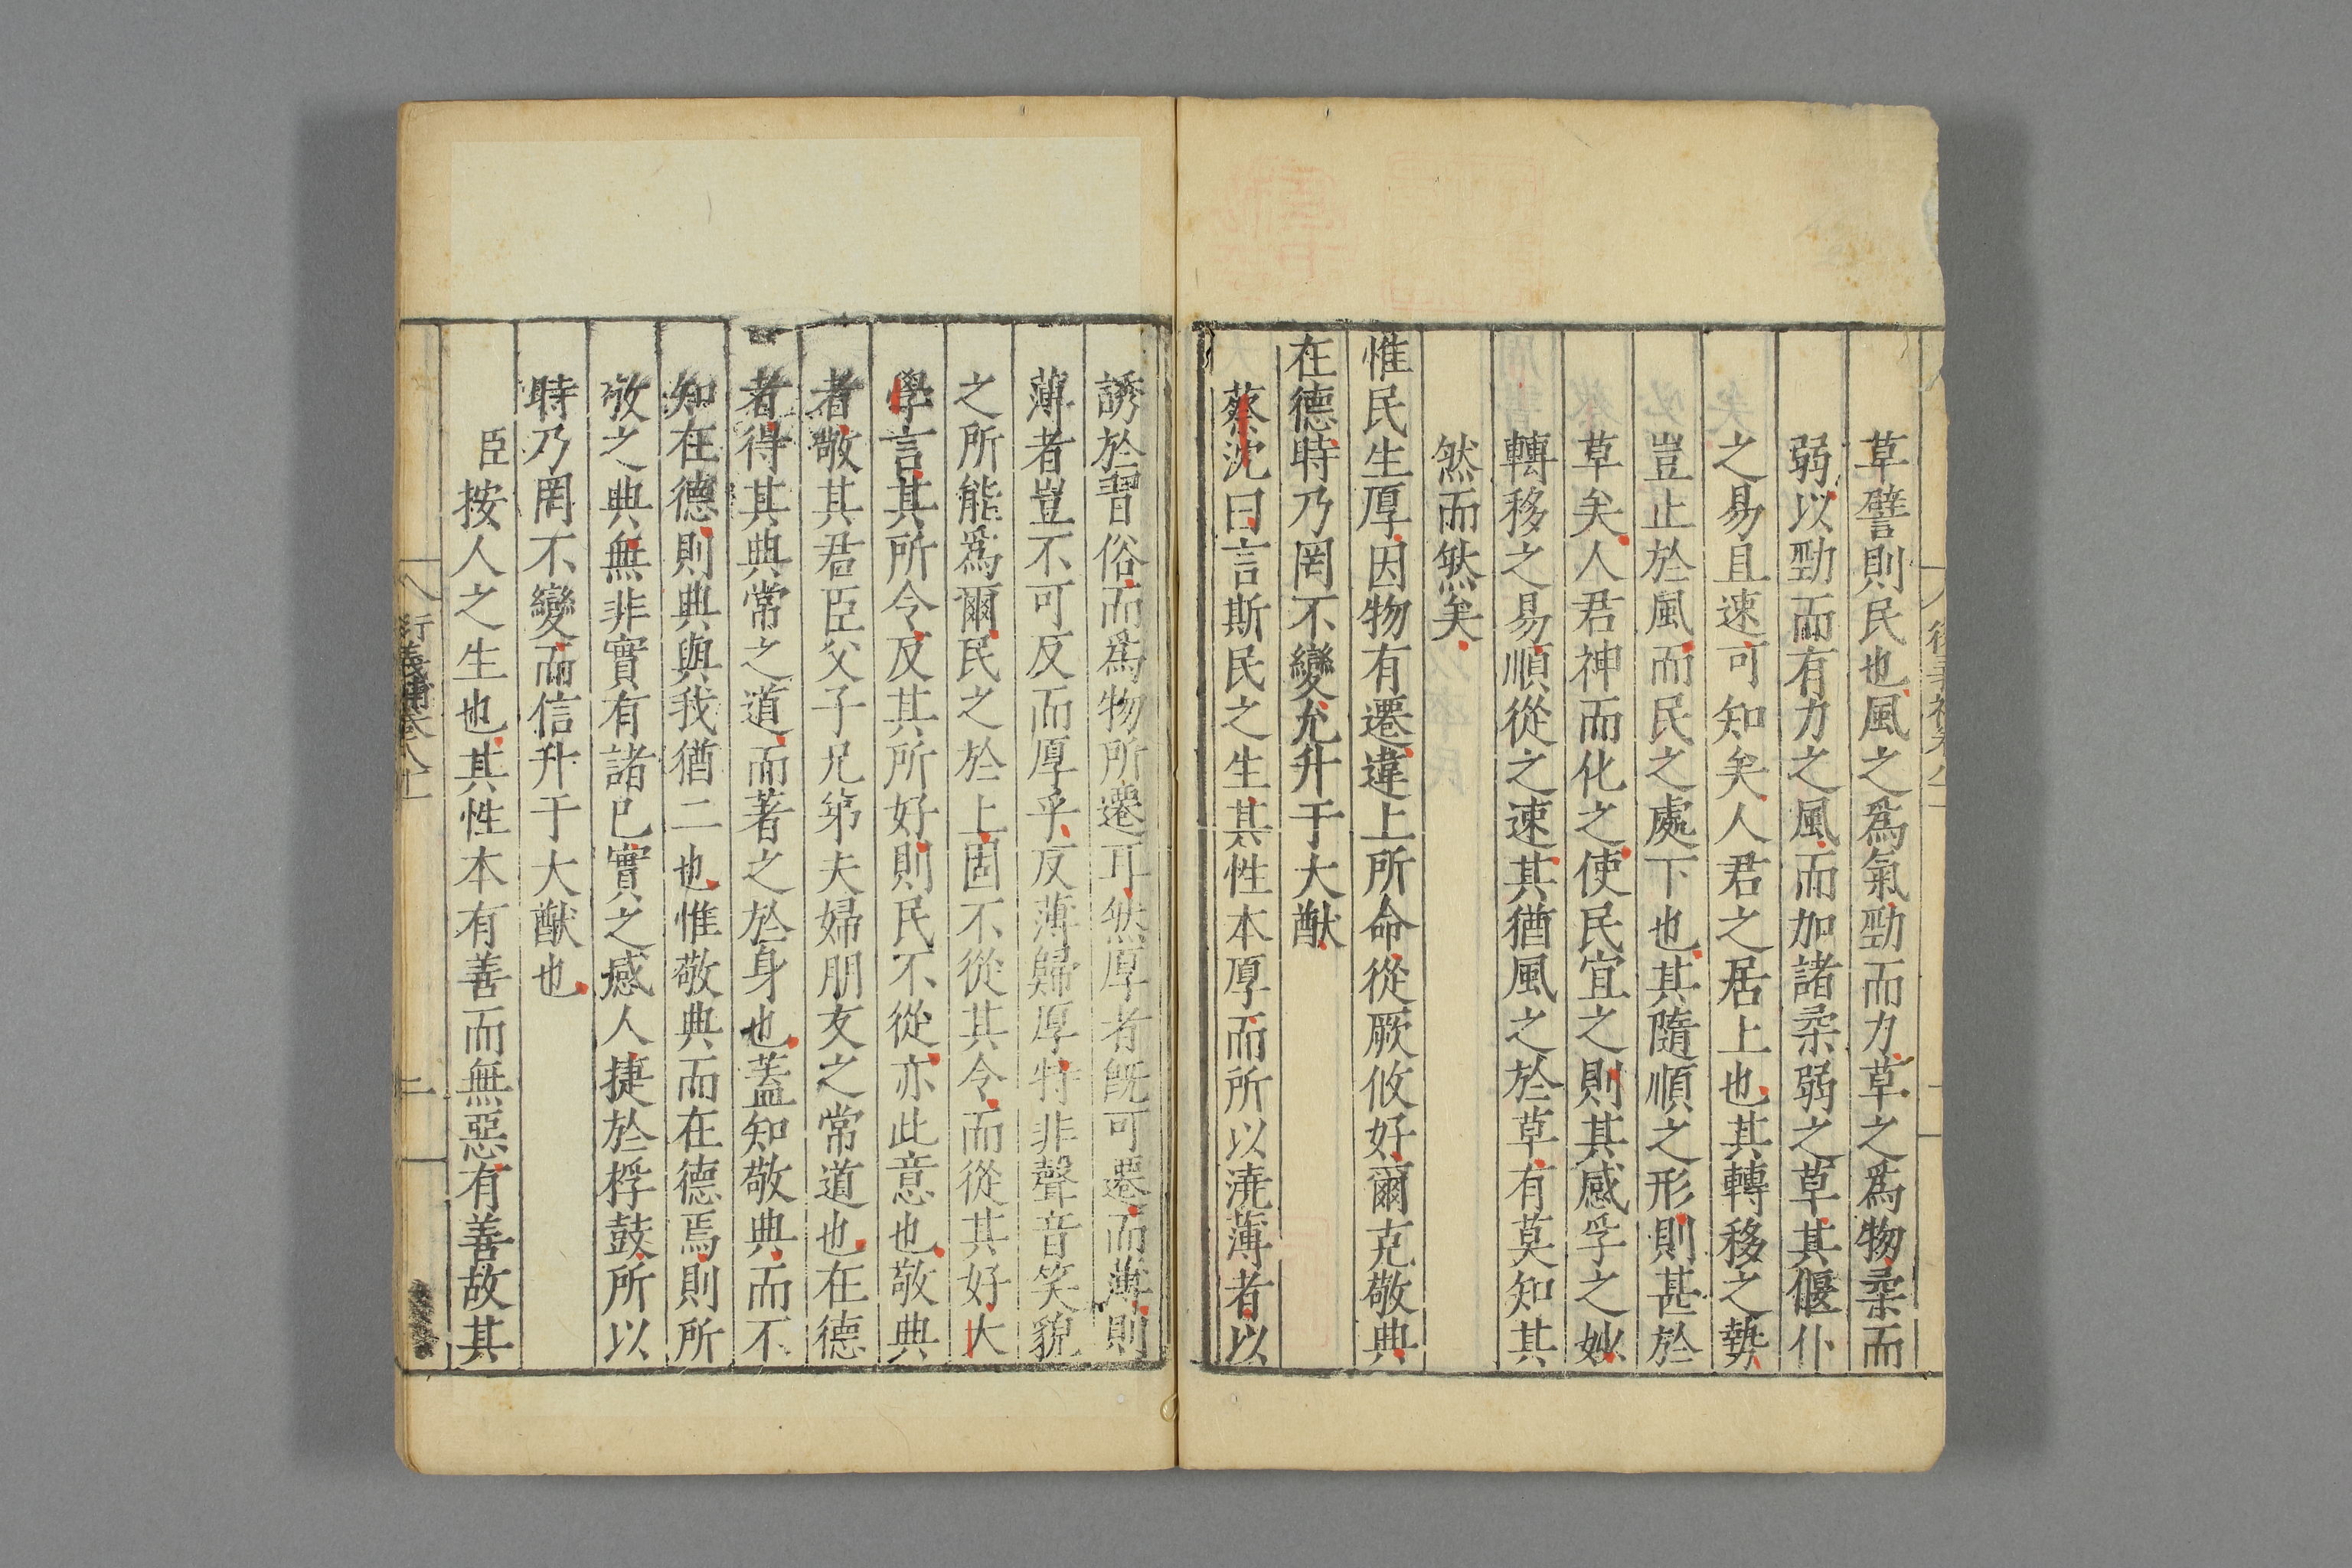 草譬則民也風之爲氣勁而力草之爲物柔而
弱以勁而有力之風而加諸柔弱之草其偃仆
之易且速可知矣人君之居上也其轉移之勢
豈止於風而民之處下也其隨順之形則甚於
草矣人君神而化之使民宜之則其感孚之妙
轉移之易順從之速其猶風之於草有莫知其
然而然矣
惟民生厚因物有遷違上所命從厥攸好爾克敬典
在德時乃罔不變允升于大猷
蔡沈曰言斯民之生其性本厚而所以澆薄者以
誘於習俗而爲物所遷耳然厚者旣可遷而薄則
薄者豈不可反而厚乎反薄歸厚特非聲音笑貌
之所能爲爾民之於上固不從其令而從其好大
學言其所令反其所好則民不從亦此意也敬典
者敬其君臣父子兄弟夫婦朋友之常道也在德
者得其典常之道而著之於身也蓋知敬典而不
知在德則典與我猶二也惟敬典而在德焉則所
敬之典無非實有諸已實之感人捷於桴鼓所以
時乃罔不變而信升于大猷也
臣按人之生也其性本有善而無惡有善故其
衍義補卷八十二
二